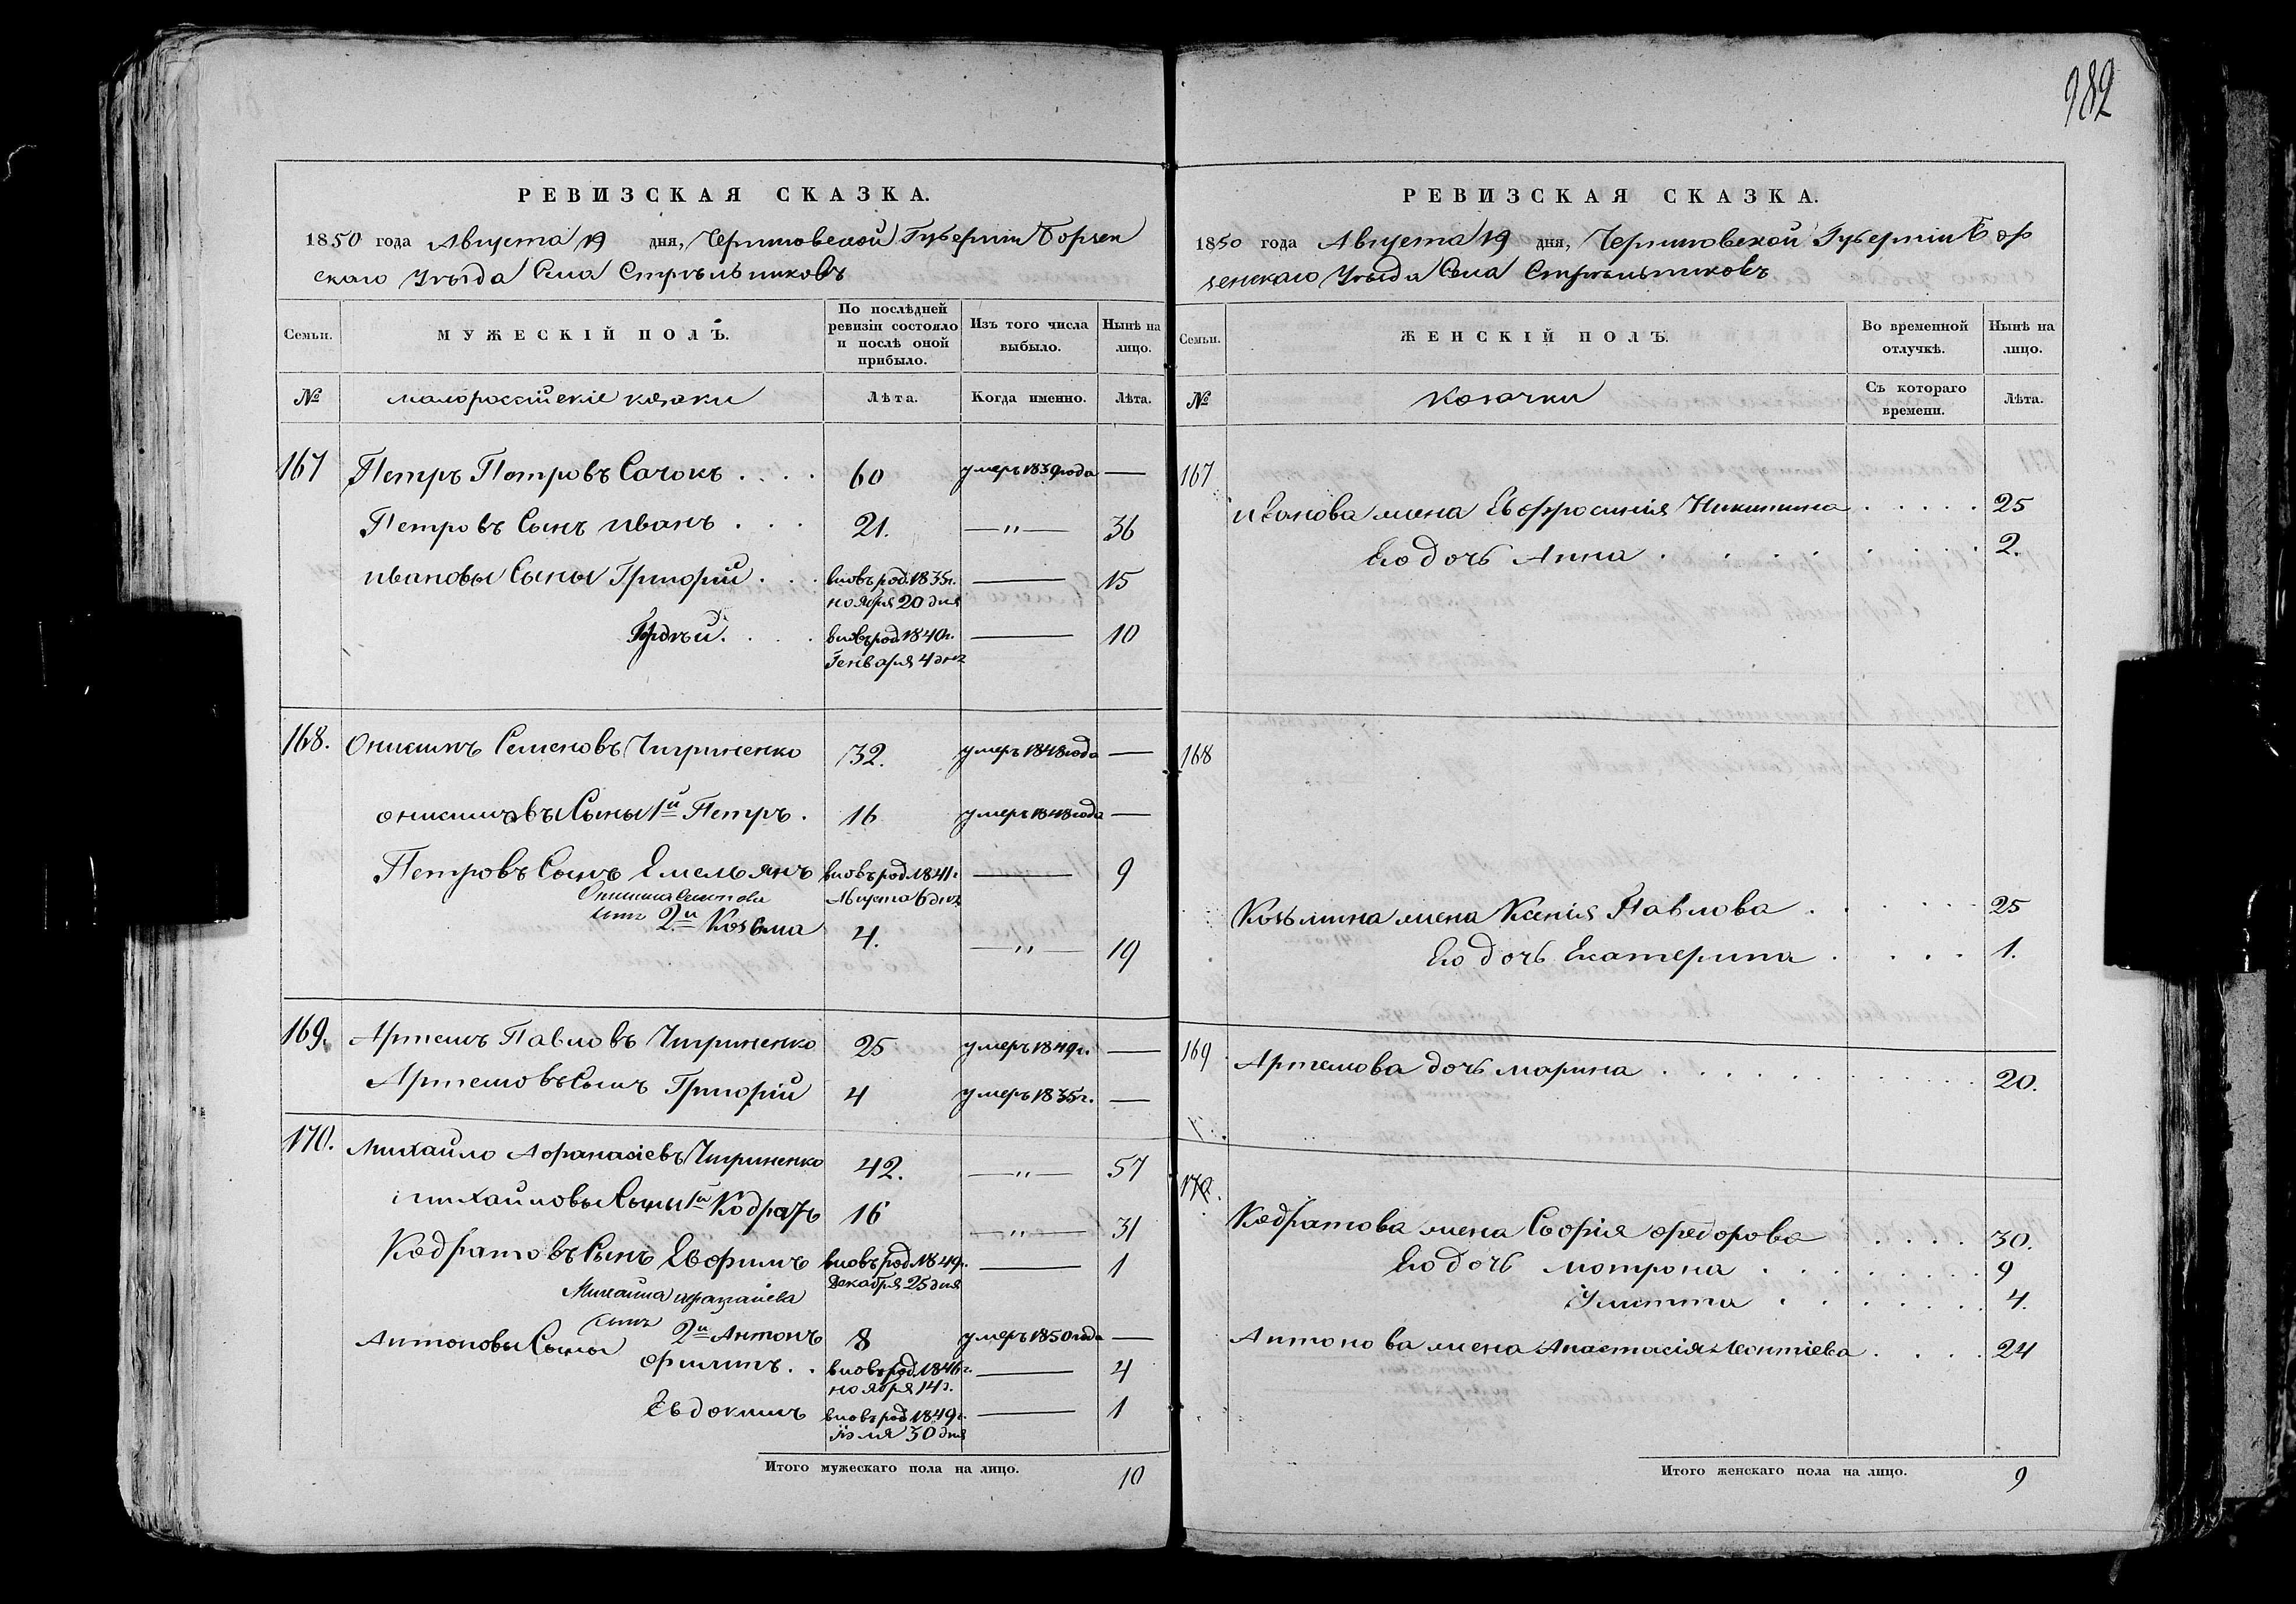 982
РЕВИЗСКАЯ СКАЗКА.
1850 года Августа 19 дня, Черниговской Губернии Борзен
скаго Уѣзда Села Стрѣльниковъ
Семьи. МУЖЕСКІЙ ПОЛЪ. По послѣдней ревизіи состояло и послѣ оной прибыло. Изъ того числа выбыло. Нынѣ на лицо.
№ малороссійскіе козаки Лѣта. Когда именно. Лѣта.
167 Петръ Петровъ Сачокъ . . . . 60 умеръ 1839 года —
Петровъ Сынъ иванъ . . . 21. —"— 36
ивановы Сыны Григорій . . . вновь род. 1835 г. — 15
ноября 20 дня
. . . . вновь род. 1840 г. — 10
Генваря 4 дня
168. Онисимъ Семеновъ Чигриненко 32. умеръ 1848 года —
онисимовы Сыны 1й Петръ . 16 умеръ 1848 года —
Петровъ Сынъ Емельянъ вновь род. 1841 г. — 9
Онисима Семенова Августа 6 дня
сынъ 2й Козьма 4. —"— 19
169. Артемъ Павловъ Чигриненко 25 умеръ 1849 г. —
Артемовъ Сынъ Григорій 4 умеръ 1835 г. —
170. Михайло Афанасіевъ Чигриненко 42. —"— 57
михайловы Сыны 1й Кодратъ 16 —"— 31
Кодратовъ Сынъ Евфимъ вновь род. 1849 г. — 1
Декабря 25 дня
Михайла
сынъ 2й Антонъ 8 умеръ 1850 года —
Антоновы Сыны филипъ . . вновь род. 1846 г. — 4
ноября 14 г.
Евдокимъ вновь род. 1849 г. — 1
Іюля 30 дня
Итого мужескаго пола на лицо. 10
РЕВИЗСКАЯ СКАЗКА.
1850 года Августа 19 дня, Черниговской Губерніи Бор
зенскаго Уѣзда Села Стрѣльниковъ
Семьи. ЖЕНСКІЙ ПОЛЪ. Во временной отлучкѣ. Нынѣ на лицо.
№ Козачки Съ котораго времени. Лѣта.
167
иванова жена Евфросинія Никитина . . . . . 25
Его дочь Анна . . . . . . . . . 2.
168
Козьмина жена Ксенія Павлова . . . . . . 25
Его дочь Екатерина . . . . . 1.
169 Артемова дочь марина . . . . . . . . . . . 20.
170.
Кодратова жена Софія федорова . . . . 30.
Его дочь мотрона . . . . . . . . 9
Улитта . . . . . . . 4.
Антонова жена Анастасія Леонтіева . . . . 24
Итого женскаго пола на лицо. 9